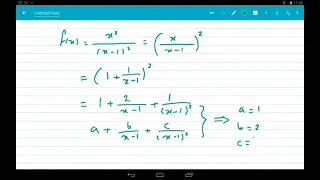 17:26
Untitled Note
f(x) = x²/(x-1)² = (x/(x-1))²
= (1 + 1/(x-1))²
= 1 + 2/(x-1) + 1/(x-1)²
a + b/(x-1) + c/(x-1)² } ⇒ a = 1
b = 2
c =